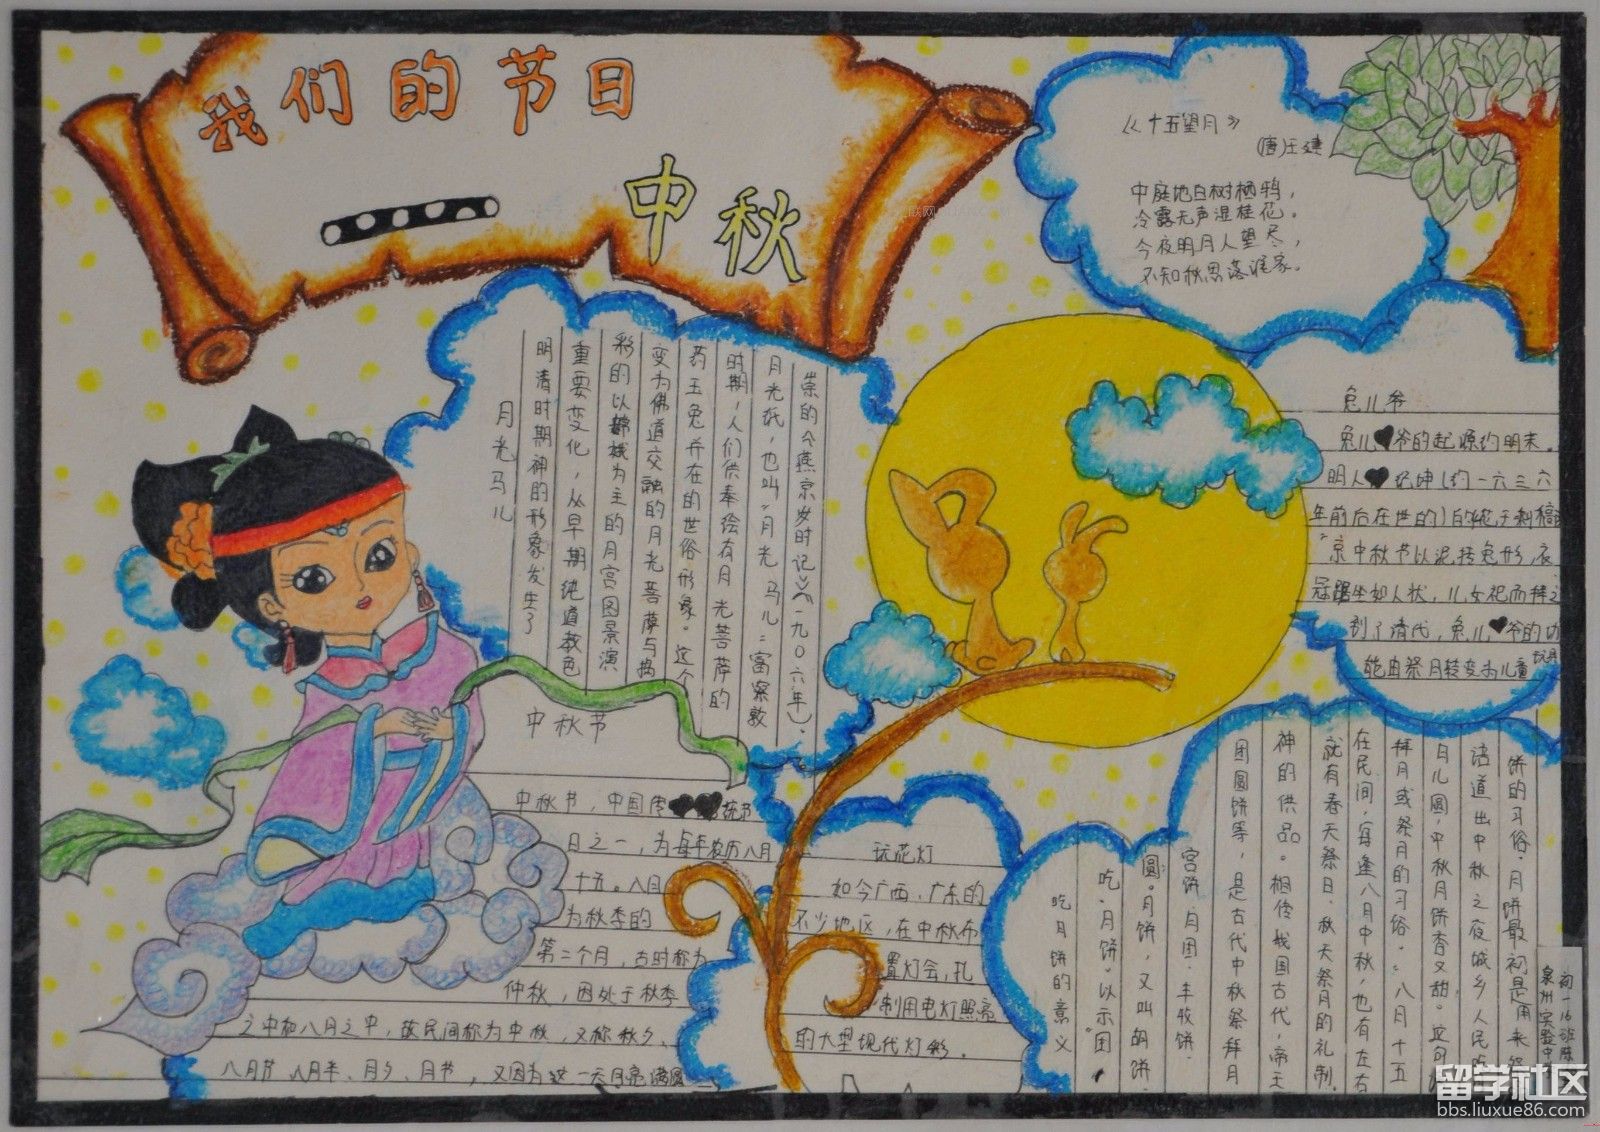 我们的节日
中秋
《十五望月》
(唐)王建
中庭地白树栖鸦，
冷露无声湿桂花。
今夜明月人望尽，
不知秋思落谁家。
月光马儿
明清时期神的形象发生了
重要变化，从早期纯道教色
彩的以嫦娥为主的月宫图景演
变为佛道交融的月光菩萨与捣
药玉兔并在的世俗形象。这个
时期，人们供奉绘有月光菩萨的
月光纸，也叫"月光马儿"富察敦
崇的《燕京岁时记》(一九〇六年)
兔儿爷
兔儿爷的起源约明末。
明人纪坤(约一六三六
年前后在世的)的
京中秋节以泥抟兔形，衣
冠踞坐如人状，儿女祀而拜之
到了清代，兔儿爷的功
能由祭月转变为儿童玩具
中秋节
中秋节，中国传统节
日之一，为每年农历八月
十五。八月
为秋季的
第二个月，古时称为
仲秋，因处于秋季
之中和八月之中，故民间称为中秋，又称秋夕、
八月节、八月半、月夕、月节，又因为这一天月亮满圆
玩花灯
如今广西、广东的
不少地区，在中秋布
置灯会，扎
制用电灯照亮
的大型现代灯彩。
吃月饼的意义
吃"月饼"以示"团
圆"。月饼，又叫胡饼、
宫饼、月团、丰收饼、
团圆饼等，是古代中秋祭拜月
神的供品。相传我国古代，帝王
就有春天祭日、秋天祭月的礼制。
在民间，每逢八月中秋，也有左右
拜月或祭月的习俗。"八月十五
月儿圆，中秋月饼香又甜"。这句
话道出中秋之夜城乡人民吃
饼的习俗。月饼最初是用来祭
初一16班
泉州实验中
留学社区
bbs.liuxue86.com